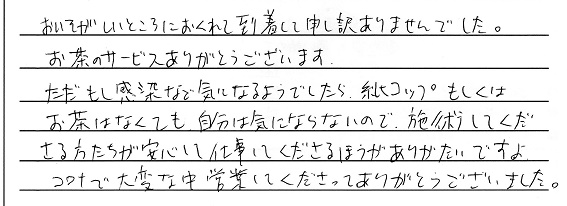 おいそがしいところにおくれて到着して申し訳ありませんでした。
お茶のサービスありがとうございます.
ただもし感染など気になるようでしたら、紙コップもしくは
お茶はなくても、自分は気にならないので、施術してくだ
さる方たちが安心して仕事してくださるほうがありがたいですよ
コロナで大変な中営業してくださってありがとうございました。